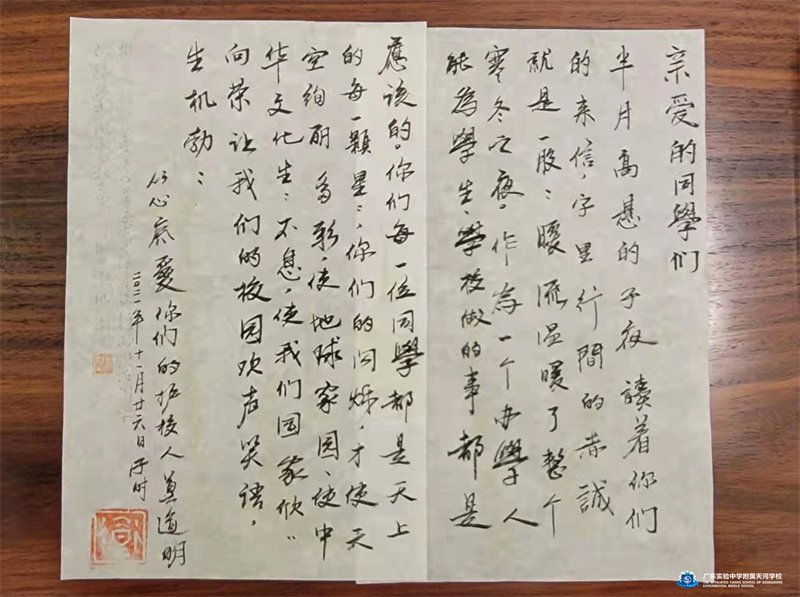 亲爱的同學们
半月高悬的子夜 讀着你们
的来信,字里行間的赤誠
就是一股:暖流温暖了整个
寒冬之夜。作為一个办學人
能為學生、學校做的事都是
應该的。你们每一位同學都是天上
的每一顆星:,你们的闪烁,才使天
空绚丽多彩,使地球家园、使中
华文化生:不息,使我们国家欣〃
向荣 让我们的校园欢声笑语,
生机勃:
以心底爱你们的护校人 莫道明
二〇二一年十一月廿六日子时
广东实验中学附属天河学校
THE AFFILIATED TIANHE SCHOOL OF GUANGDONG
EXPERIMENTAL MIDDLE SCHOOL